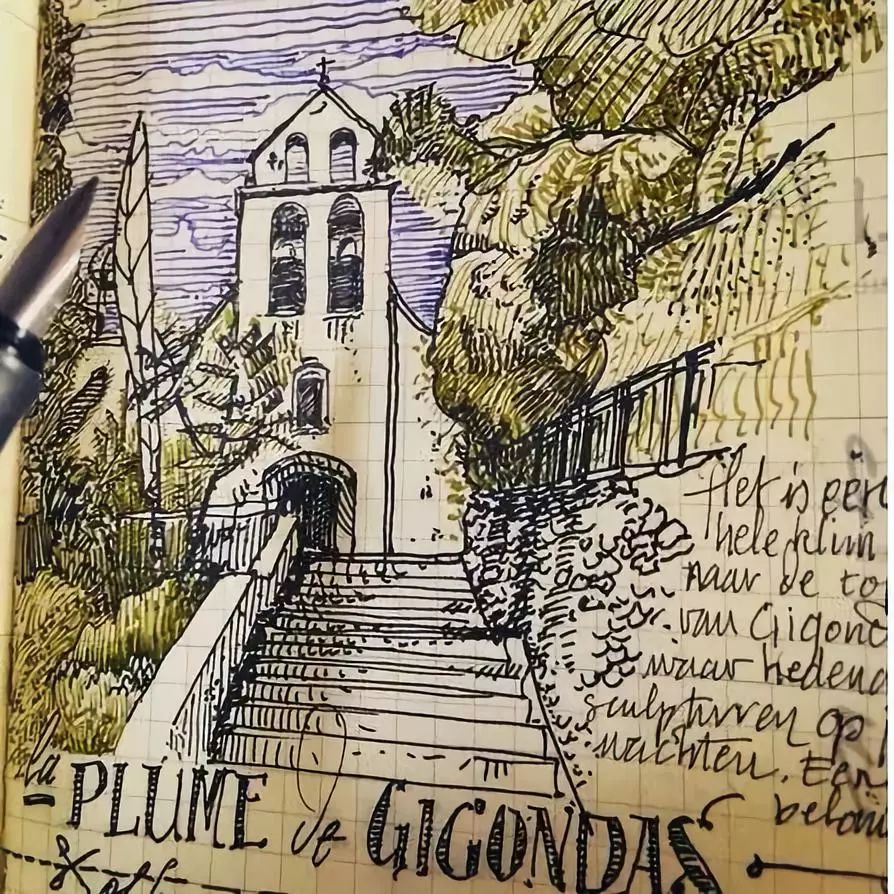 Het is een
hele klim
naar de to
van Gigond
waar hedend
sculpturen op
wachten. Een
belon
la PLUME de GIGONDAS